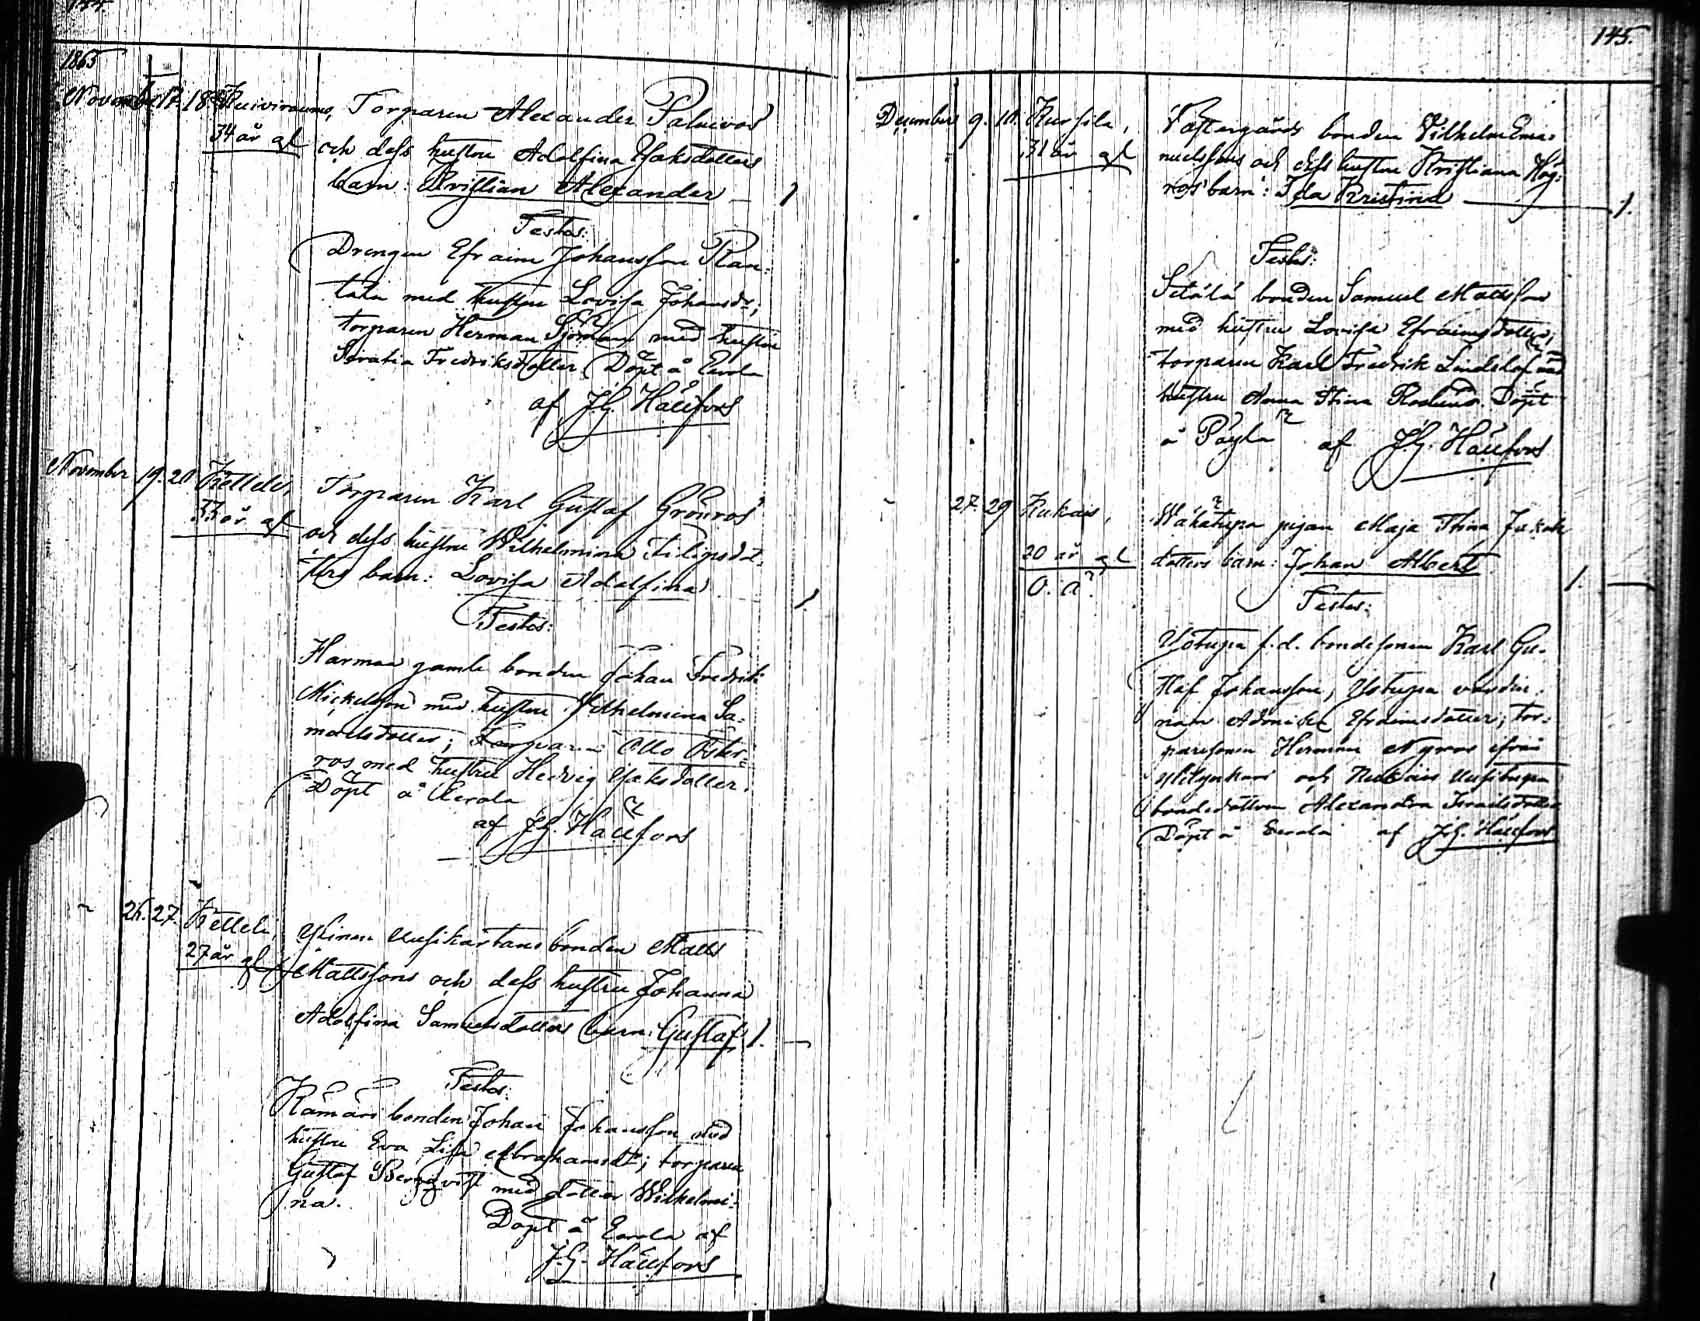 144
1865
November 17. 18. Kuiviraumo, Torparen Alexander Palmros
34 år gl och dess hustru Adolfina Isaksdotters
barn: Kristian Alexander 1
Testes:
Drengen Efraim Johansson Ran-
tala med hustru Lovisa Johansdr;
torparen Herman Sjöman med hustru
Fredriksdotter Döpt å Eurala
af J.G. Hallfors
November 19. 20 Kelleli,
33 år gl
Torparen Karl Gustaf Grönros
och dess hustru Wilhelmina Filipsdot-
ters barn: Lovisa Adolfina 1
Testes:
Harmaa gamle bonden Johan Fredrik
Mickelsson med hustru Wilhelmina Sa-
muelsdotter; Torparen Otto
ros med hustru Hedvig Isaksdotter.
Döpt å Eurala
af J.G. Hallfors
26. 27. Kelleli,
27 år gl
Uusikartano bonden Matts
Mattssons och dess hustru Johanna
Adolfina Samuelsdotters barn: Gustaf 1.
Testes:
bonden Johan Johansson med
hustru Eva Lisa Abrahamsdr; torparen
Gustaf Bergqvist med dotter Wilhelmi-
na.
Döpt å Eurala af
J.G. Hallfors
145.
December 9. 10. Kursila,
31 år gl
Västergårds bonden Vilhelm Ema-
nuelssons och dess hustru Kristiana Hög-
ros barn: Ida Kristina 1.
Testes:
Setälä bonden Samuel Mattsson
med hustru Lovisa Efraimsdotter;
torparen Karl Fredrik Lindelöf med
hustru Anna Stina Roslund. Döpt
å af J.G. Hallfors
27. 29 Kukais,
20 år gl
O. ä.
Wähätupa pigan Maja Stina Isaks
dotters barn: Johan Albert 1.
Testes:
Ystupa f.d. bondesonen Karl Gu-
staf Johansson, Ystupa värdin-
nan Efraimsdotter; tor-
paresonen Herman Nyros ifrån
och Kukais Uusitupa
bondedottern Alexandra Israelsdotter
Döpt å Eurala af J.G. Hallfors